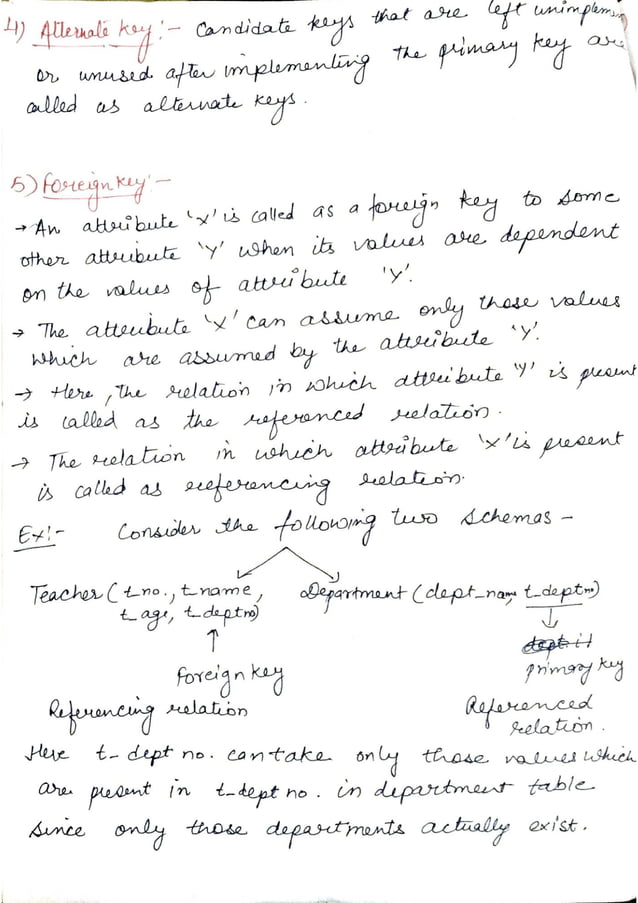 4) Alternate key :- Candidate keys that are left unimplemen
or unused after implementing the primary key are
called as alternate keys.
5) Foreign key :-
→ An attribute 'x' is called as a foreign key to some
other attribute 'Y' when its values are dependent
on the values of attribute 'Y'.
→ The attribute 'x' can assume only those values
which are assumed by the attribute 'Y'.
→ Here, the relation in which attribute 'Y' is present
is called as the referenced relation.
→ The relation in which attribute 'x' is present
is called as referencing relation.
Ex:- Consider the following two schemas -
Teacher (t_no., t_name, Department (dept_name, t_deptno)
t_age, t_deptno)
↑ ↓
dept id
Foreign key primary key
Referencing relation Referenced
relation.
Here t-dept no. can take only those values which
are present in t-dept no. in department table
since only those departments actually exist.